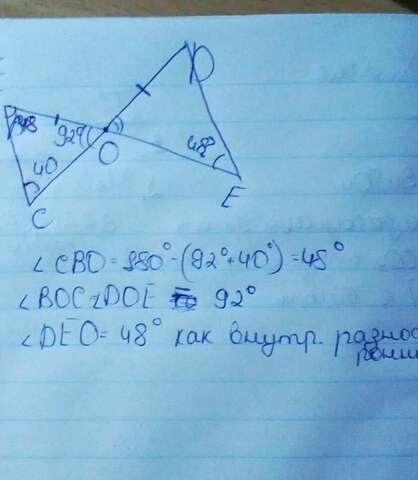 D
48
92°
O
48°
40
E
C
∠CBO = 180° - (92° + 40°) = 48°
∠BOC = ∠DOE 92°
∠DEO = 48° как внутр. разнос
ронни